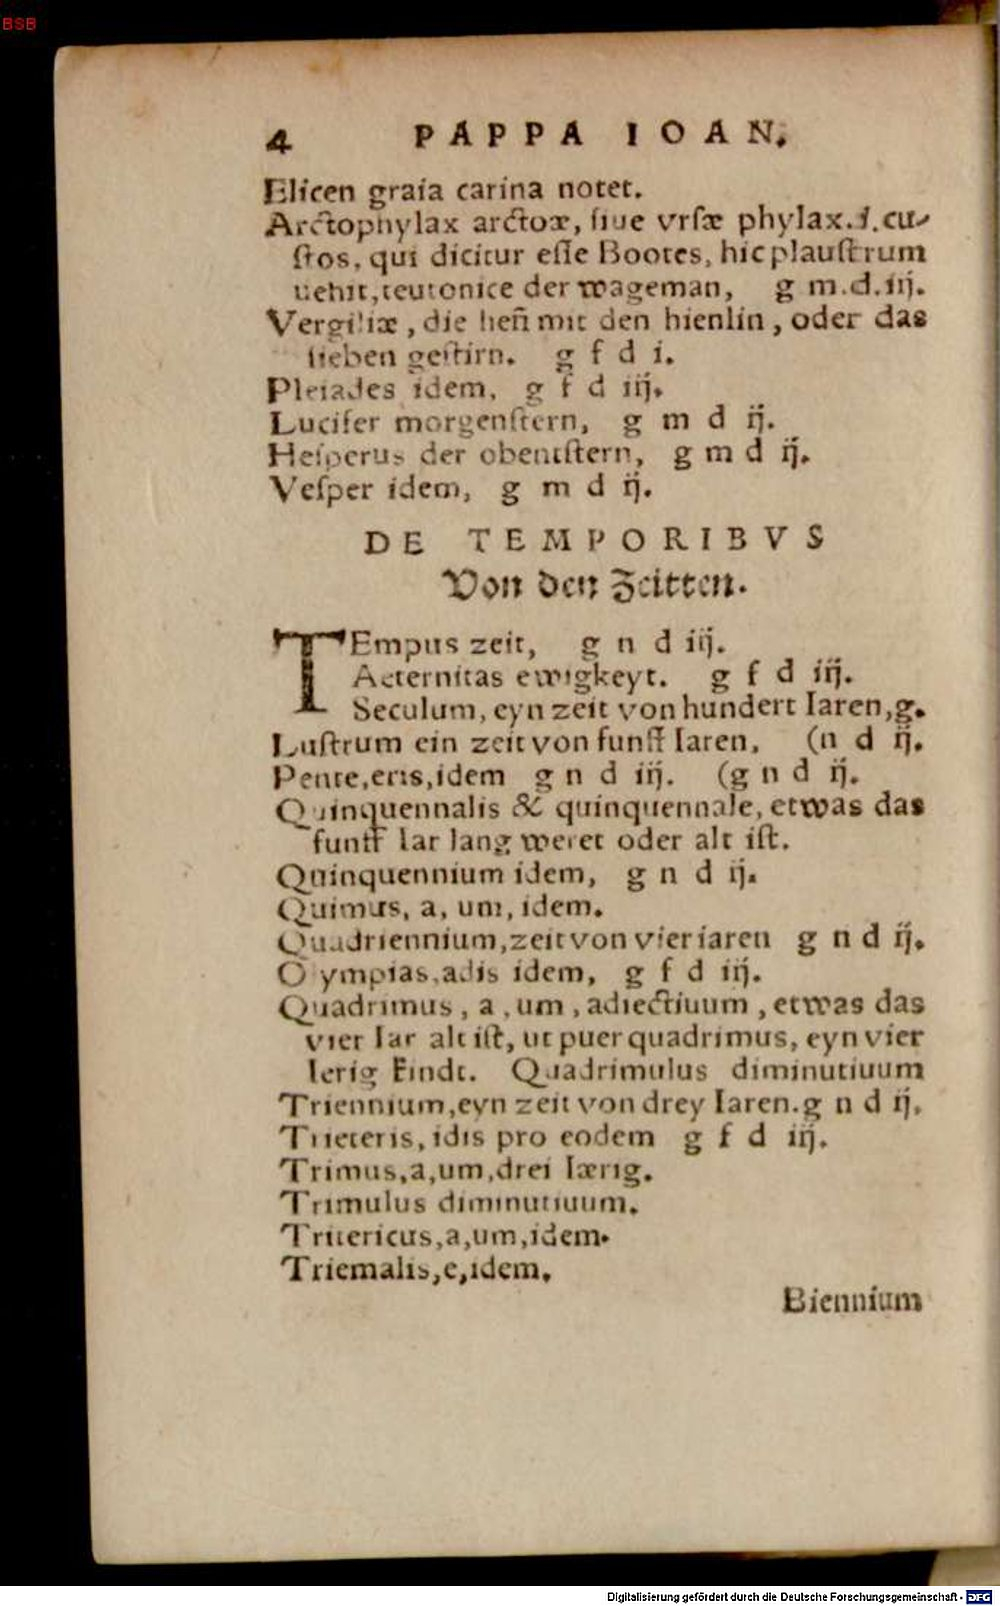 BSB
4 PAPPA IOAN.
Elicen graia carina notet.
Arctophylax arctoæ, siue vrsæ phylax.i.cu-
stos, qui dicitur esse Bootes, hic plaustrum
uehit, teutonice der wageman, g m.d.iij.
Vergiliæ, die heñ mit den hienlin, oder das
sieben gestirn. g f d i.
Pleiades idem, g f d iij.
Lucifer morgenstern, g m d ij.
Hesperus der obentstern, g m d ij.
Vesper idem, g m d ij.
DE TEMPORIBVS
Von den Zeitten.
TEmpus zeit, g n d iij.
Aeternitas ewigkeyt. g f d iij.
Seculum, eyn zeit von hundert Iaren, g.
Lustrum ein zeit von funff Iaren. (n d ij.
Pente, eris, idem g n d iij. (g n d ij.
Quinquennalis & quinquennale, etwas das
funff Iar lang weret oder alt ist.
Quinquennium idem, g n d ij.
Quimus, a, um, idem.
Quadriennium, zeit von vier iaren g n d ij.
Olympias, adis idem, g f d iij.
Quadrimus, a, um, adiectiuum, etwas das
vier Iar alt ist, ut puer quadrimus, eyn vier
Ierig kindt. Quadrimulus diminutiuum
Triennium, eyn zeit von drey Iaren. g n d ij.
Trieteris, idis pro eodem g f d iij.
Trimus, a, um, drei Iærig.
Trimulus diminutiuum.
Trietericus, a, um, idem.
Triemalis, e, idem.
Biennium
Digitalisierung gefördert durch die Deutsche Forschungsgemeinschaft - DFG